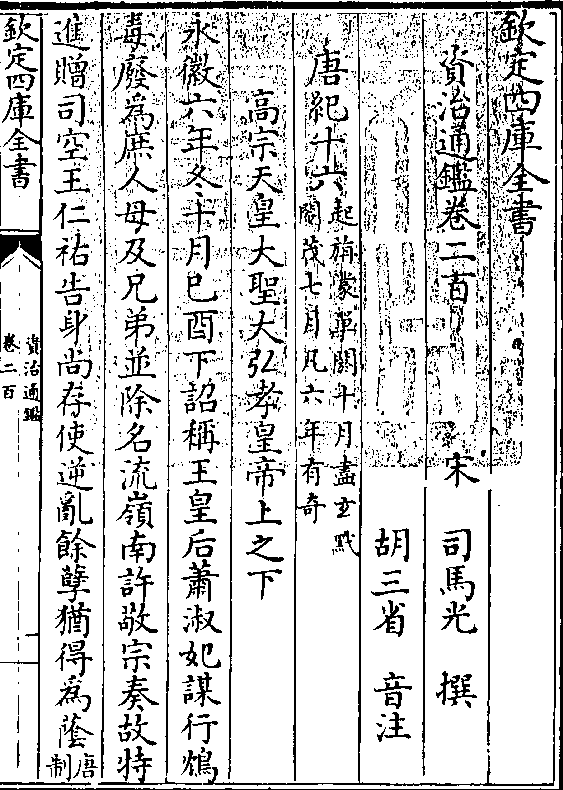 欽定四庫全書
資治通鑑卷二百
宋 司馬光 撰
胡三省 音注
唐紀十六起旃蒙單閼十月盡玄黓
閹茂七月凡六年有奇
高宗天皇大聖大弘孝皇帝上之下
永徽六年冬十月己酉下詔稱王皇后蕭淑妃謀行鴆
毒廢為庶人母及兄弟並除名流嶺南許敬宗奏故特
進贈司空王仁祐告身尚存使逆亂餘孽猶得為蔭唐
制
欽定四庫全書
資治通鑑
卷二百
一